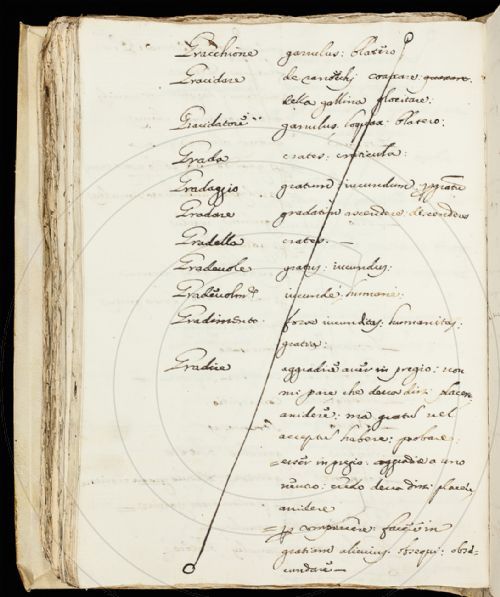 Gracchione garrulus: blatero
Gracidare de ranocchj coaxare
della gallina glocitare:
Gracidatore garrulus. loquax: blatero:
Grada crates: craticula:
Gradaggio gratum: iucundum
Gradare gradatim ascendere descendere
Gradella crates. —
Gradeuole gratus: iucundus:
Gradeuolmte iucunde: humane:
Gradimento. forse iucunditas: humanitas:
gratia:
Gradire aggradire auer in pregio: non
mi pare che deua dirsi placere
arridere: ma gratu uel
acceptu habere: probare:
=esser in pregio: aggradire a uno
nuouo: credo deua dirsi placere
arridere
= p compiacere: facere in
gratiam alicuius: obsequi: obse-
cundare —